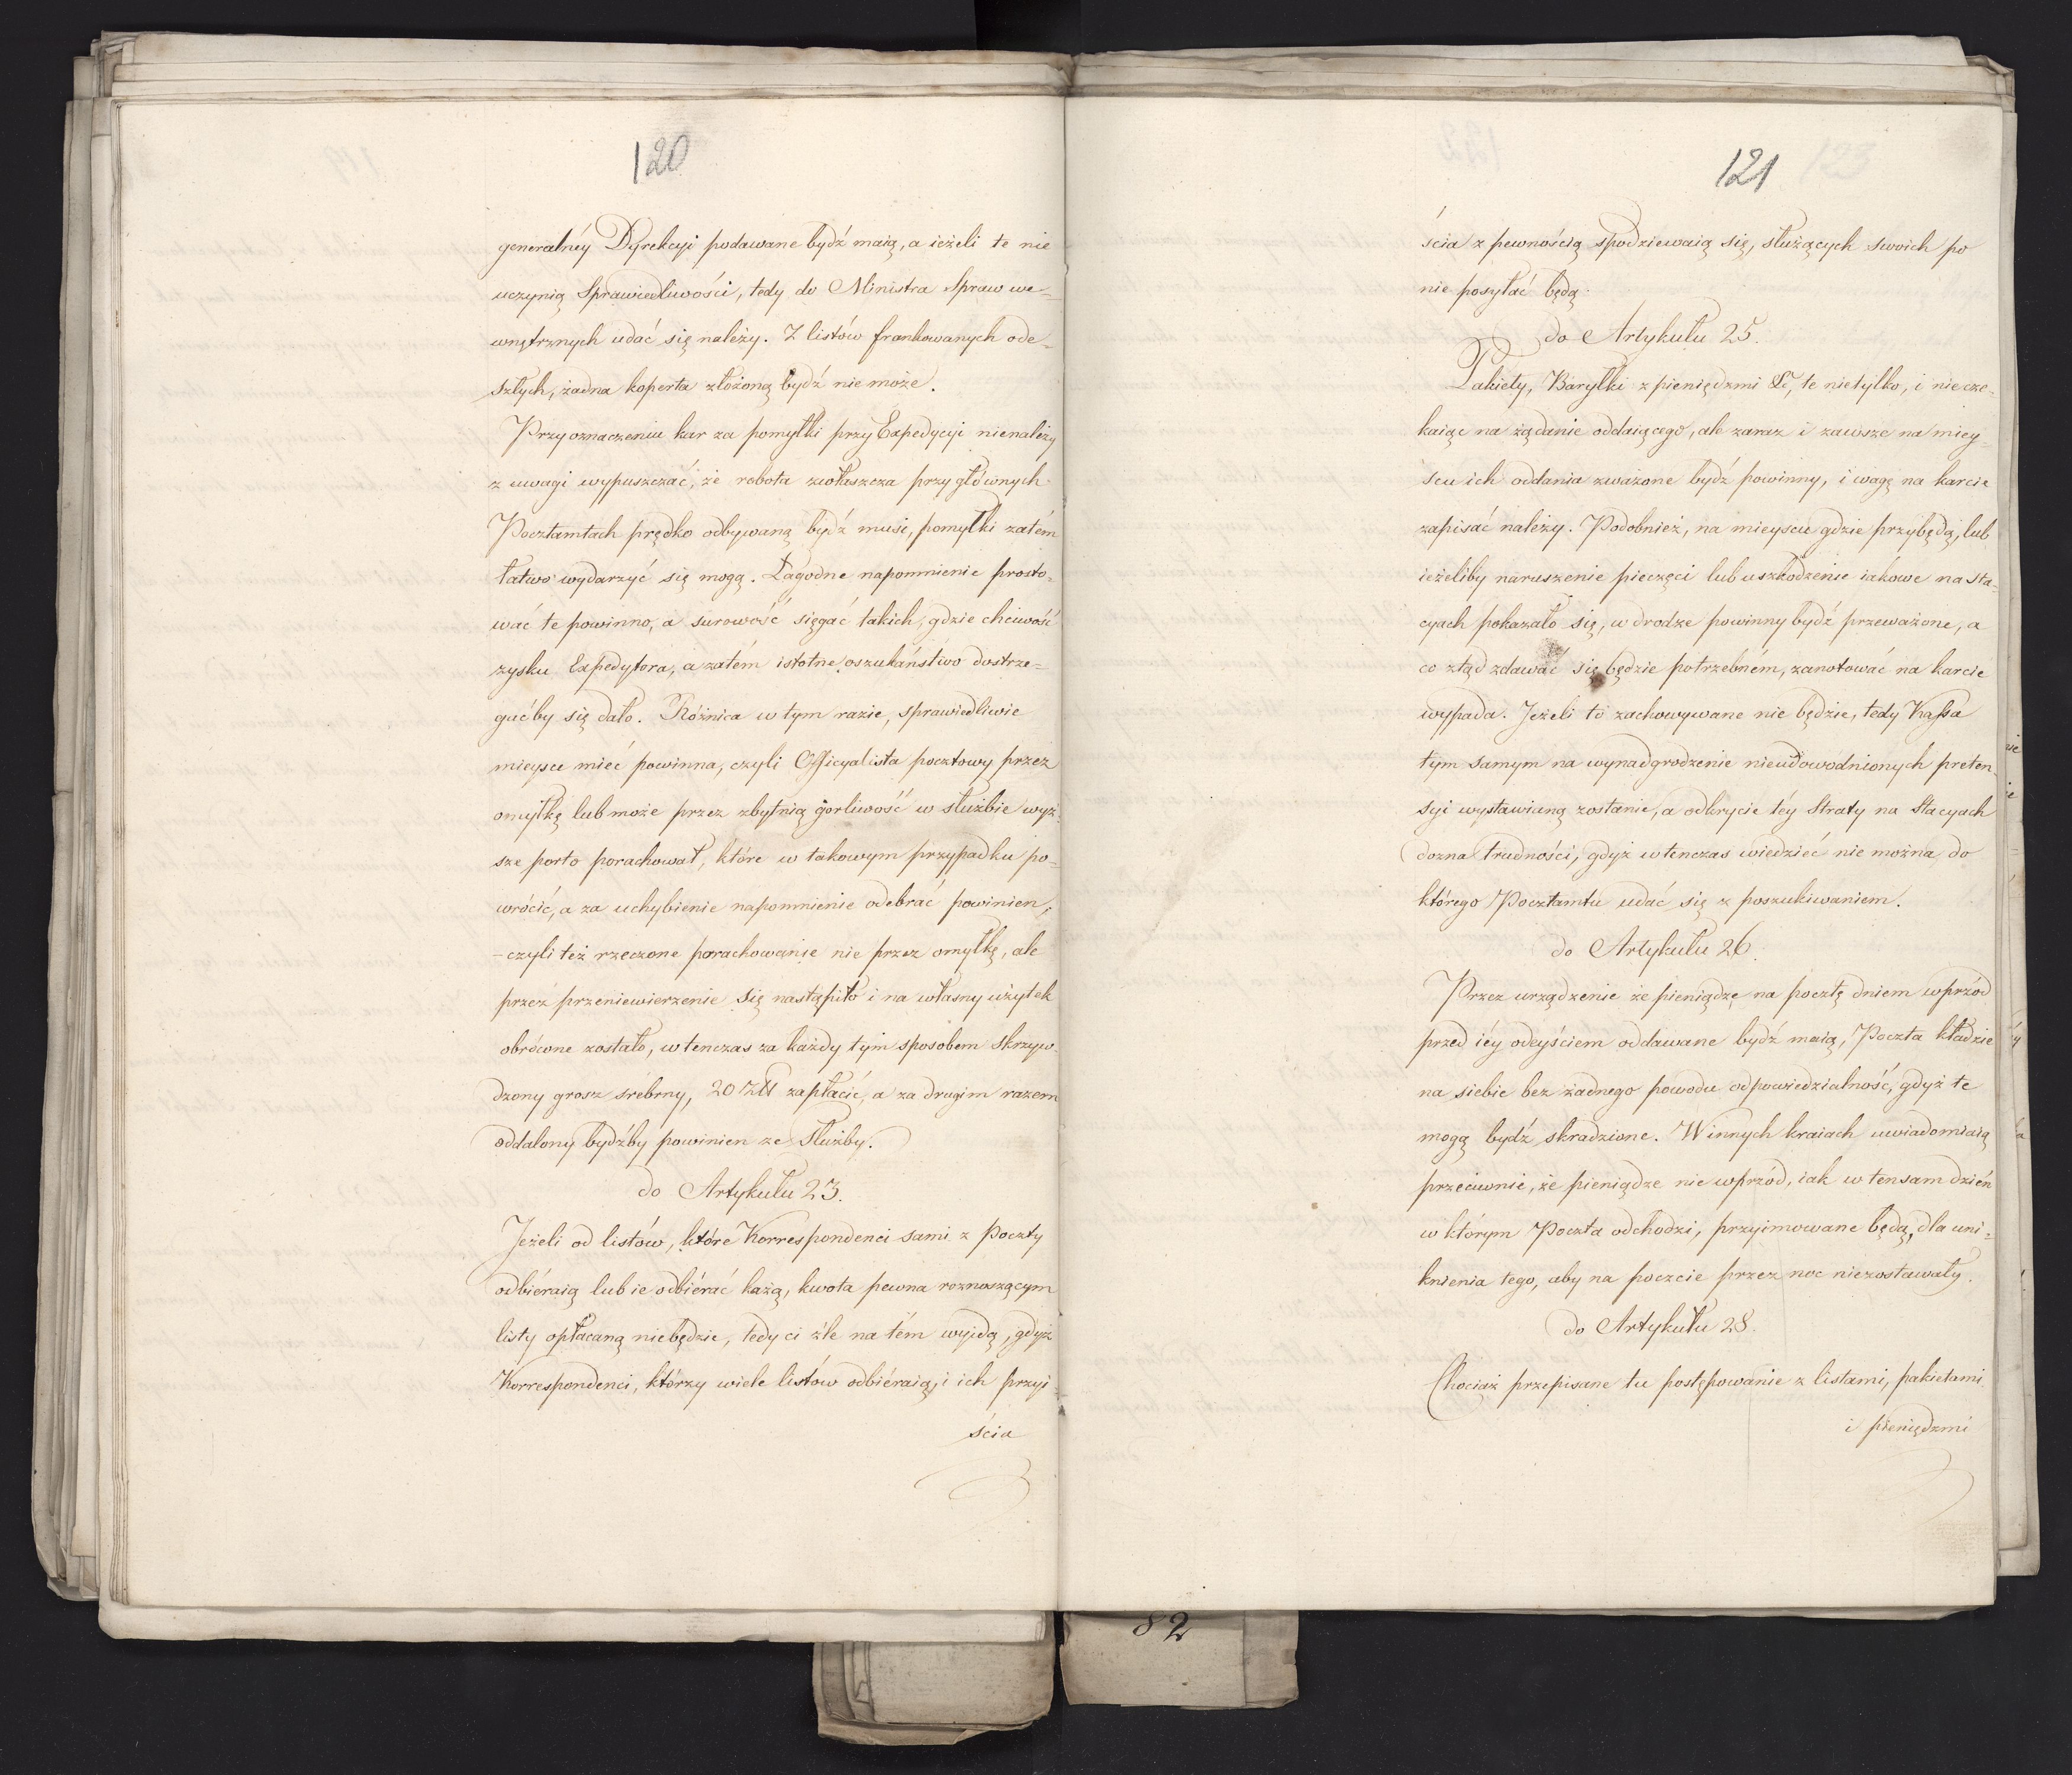 120
generalnéy Dyrekcyi podawane bydź maią, a ieżeli te nie
uczynią Sprawiedliwości, tedy do Ministra Spraw we=
wnętrznych udać się należy. Z listów frankowanych ode=
szłych, żadna koperta złożoną bydź nie może.
Przy oznaczeniu kar za pomyłki przy Expedycyi nienależy
z uwagi wypuszczać, że robota zwłaszcza przy głównych
Pocztamtach prędko odbywaną bydź musi, pomyłki zatém
łatwo wydarzyć się mogą. Łagodne napomnienie prosto=
wać te powinno, a surowość sięgać takich, gdzie chciwość
zysku Expedytora, a zatém istotne oszukaństwo dostrze=
gać by się dało. Różnica w tym razie, sprawiedliwie
mieysce mieć powinna, czyli Officyalista pocztowy przez
omyłkę lub może przez zbytnią gorliwość w służbie wyż=
sze porto porachował, które w takowym przypadku po=
wrócić, a za uchybienie napomnienie odebrać powinien,
– czyli też rzeczone porachowanie nie przez omyłkę, ale
przez przeniewierzenie się nastąpiło i na własny użytek
obrócone zostało, w tenczas za każdy tym sposobem skrzyw=
dzony grosz śrebrny, 20 Złł zapłacić, a za drugim razem
oddalony bydźby powinien ze Służby.
do Artykułu 23.
Jeżeli od listów, które Korrespondenci sami z Poczty
odbiéraią lub ie odbiérać każą, kwota pewna roznoszącym
listy opłacaną niebędzie, tedy ci źle na tém wyidą, gdyż
Korrespondenci, którzy wiele listów odbiéraią, i ich przyi=
ścia
121
ścia z pewnością spodziewaią się, służących swoich po
nie posyłać będą.
do Artykułu 25.
Pakiety, Baryłki z pieniędzmi &c, te nietylko, i niecze=
kaiąc na żądanie oddaiącego, ale zaraz i zawsze na miey=
scu ich oddania zważone bydź powinny, i wagę na karcie
zapisać należy. Podobnież, na mieyscu gdzie przybędą, lub
ieżeliby naruszenie pieczęci lub uszkodzenie iakowe na Sta=
cyach pokazało się, w drodze powinny bydź przeważone, a
co ztąd zdawać się będzie potrzebném, zanotować na karcie
wypada. Jeżeli to zachowywane nie będzie, tedy Kassa
tym samym na wynadgrodzenie nieudowodnionych preten=
syi wystawianą zostanie, a odkrycie téy Straty na Stacyach
dozna trudności, gdyż w tenczas wiedzieć nie można do
którego Pocztamtu udać się z poszukiwaniem.
do Artykułu 26.
Przez urządzenie że pieniądze na pocztę dniem wprzód
przed iéy odeyściem oddawane bydź maią, Poczta kładzie
na siebie bez żadnego powodu odpowiedzialność, gdyż te
mogą bydź skradzione. W innych kraiach uwiadomiaią
przeciwnie, że pieniądze nie wprzód, iak w ten sam dzień
w którym Poczta odchodzi, przyimowane będą, dla uni=
knienia tego, aby na poczcie przez noc niezostawały.
do Artykułu 28.
Chociaż przepisane tu postępowanie z listami, pakietami
i pieniędzmi
82